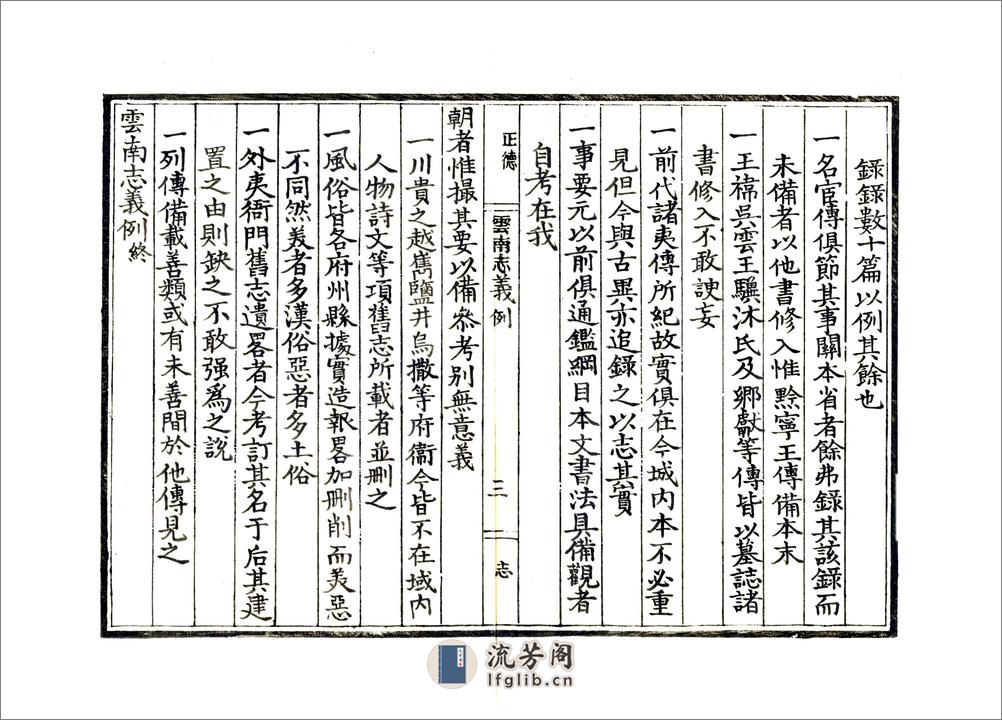 錄錄數十篇以例其餘也
一名宦傳俱節其事關本省者餘弗錄其該錄而
未備者以他書修入惟黔寧王傳備本末
一王禕吳雲王驥沐氏及鄉獻等傳皆以墓誌諸
書修入不敢諛妄
一前代諸夷傳所紀故實俱在今城内本不必重
見但今與古異亦追錄之以志其實
一事要元以前俱通鑑綱目本文書法具備觀者
自考在我
正德
雲南志義例
三
志
朝者惟撮其要以備叅考别無意義
一川貴之越嶲鹽井烏撒等府衞今皆不在域内
人物詩文等項舊志所載者並刪之
一風俗皆各府州縣據實造報畧加刪削而美惡
不同然美者多漢俗惡者多土俗
一外夷衙門舊志遺畧者今考訂其名于后其建
置之由則缺之不敢强爲之說
一列傳備載善類或有未善間於他傳見之
雲南志義例終
流芳阁
lfglib.cn